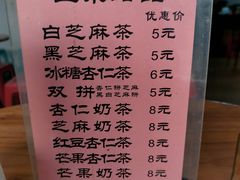 优惠价
白芝麻茶 5元
黑芝麻茶 5元
冰糖杏仁茶 6元
双拼 杏仁拼芝麻 黑白芝麻拼 5元
杏仁奶茶 8元
芝麻奶茶 8元
红豆杏仁茶 8元
芒果杏仁茶 8元
芒果奶茶 8元